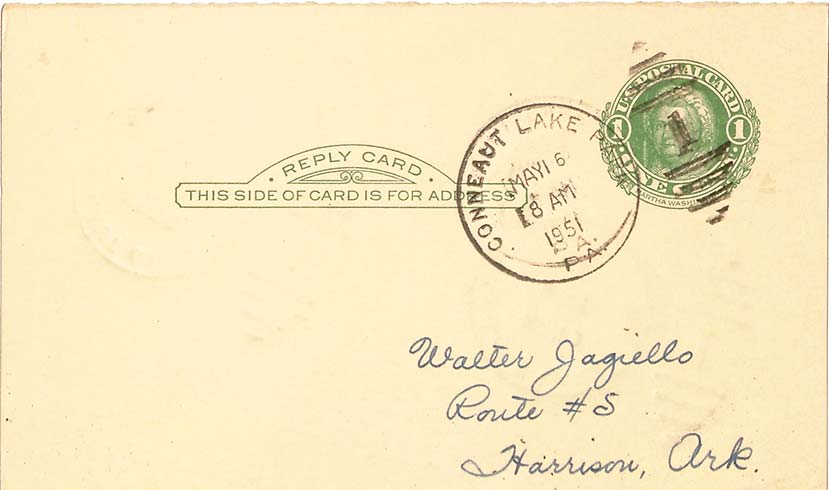 U.S. POSTAL CARD
1 1
MARTHA WASHI
REPLY CARD
THIS SIDE OF CARD IS FOR ADDRESS
CONNEAUT LAKE PARK
MAY 16
8 AM
1951
PA.
1
Walter Jagiello
Route #5
Harrison, Ark.